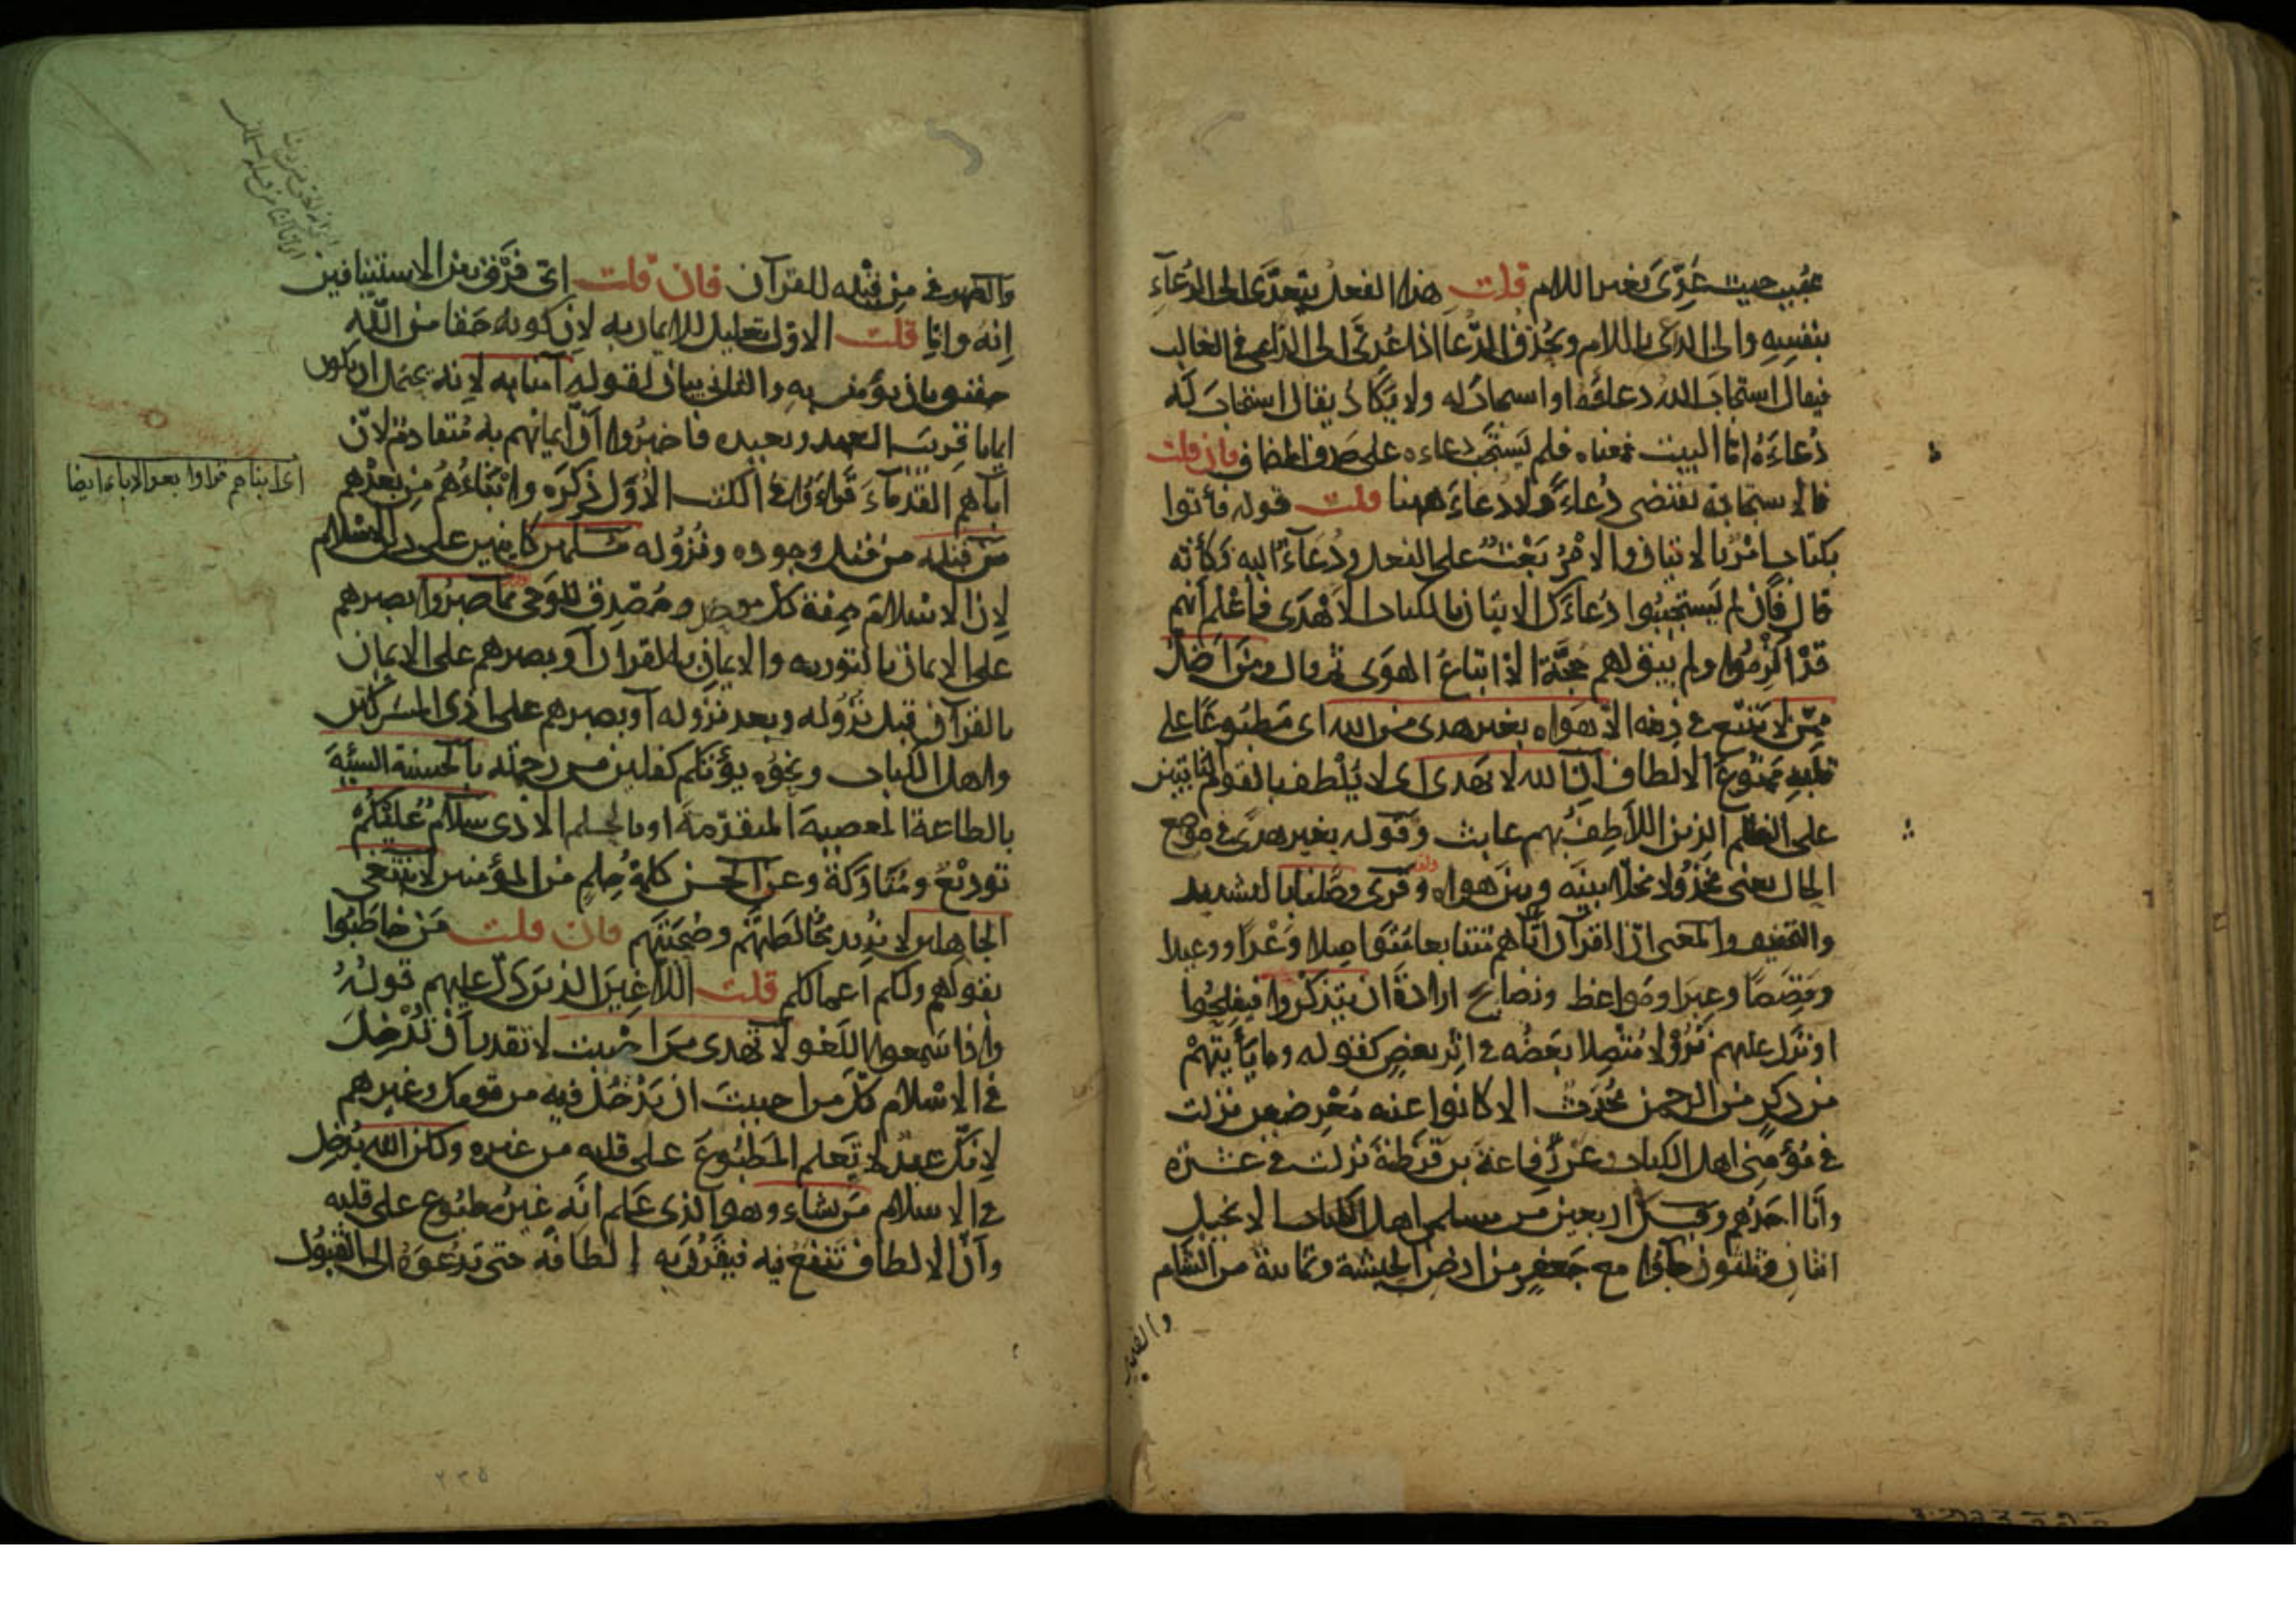 مجيب حيث عُدّى بغير اللام قلت هذا الفعل يتعدّى الى الدُعآء
بنفسه والى الداعى باللام ويُحذف الدُّعآ اذا عُدّى الى الداعى فى الغالب
فيقال استجاب الله دعاءَه او استجاب له ولا يكاد يقال استجاب له
دُعاءَهُ وامّا البيت فمعناه فلم يَستجب دعاءه على حذف المضاف فان قلت
فالاستجابة تقتضى دُعاءً ولا دعاءَ ههنا قلت قوله فأتوا
بكتاب امْرٌ بالاتيان والامْرُ بَعْثٌ على الفعل ودُعآءٌ اليه فكأنّه
قال فإن لم يَستجيبُوا دُعاءَك الى الاتيان بالكتاب الاهْدَى فاعْلم أنهم
قدْ اُلْزِمُوا ولم يبق لهم حُجّة الا اتباعُ الهوى ثم قال ومن اضل
ممّن لا يتّبع فى دينه الا هَوَاه بغير هدى من الله اى مَطبُوعًا على
قلبِه ممنُوعَ الالطاف ان الله لا يهدى اى لا يَلْطف بالقوم الثابتين
على الظلم الذين اللاطِفُ بهم عابث وقوله بغير هُدًى فى موضع
الحال يعنى مخْذُولا مخلّا بينَه وبين هواه وقرى وصَّلنا بالتشديد
والتخفيف والمعنى انّ القرآن اتَاهم متتابعا مُتَواصِلا وَعْدًا ووعيدا
وقِصَصًا وعِبَرا ومَواعظ ونصَايح ارادةَ ان يتذكّروا فيفلِحُوا
او نزل عليهم نُزُوْلًا مُتّصِلا بعضُه فى اثر بعضٍ كقوله وما يَأتِيهِمْ
من ذكرٍ من الرحمن مُحْدَثٍ الا كانوا عنه مُعْرِضين نزلت
فى مُؤْمِنى اهل الكتاب وعن رِفاعة بن قَرَظةَ نزلت فى عشرة
وأنا احَدُهم وقيل فى اربعين من مسلمى اهل الانجيل
اثنان وثلثون جَآؤا مع جَعفرٍ من ارض الحبشة وثمانية من الشام
من قبْله للقرآن فان قلت اىّ فَرْقٍ بين الاستينافين
اِنّهُ وانّا قلت الاوّل تعليل للايمان به لانّ كونه حَقّا من اللّه
حقيق بان يؤمن به والثانى بيان لقوله آمنا به لانه يحتمل ان يكون
ايمانا قريبَ العهد وبعيده فاخبَرُوا أنّ ايمانهم به مُتقادم لانّ
آباهم القدمآءَ قَرَاءُوا فى الكتب الاُوَل ذِكرَه واَبْنَاءُهُمْ مِن بَعْدهم
من قبله من قبل وجوده ونُزُوله مسلمين كاينين على دين الاسلام
لانّ الاسْلام صفة كل موحد ومُصَدِق للوَحى بما صَبَرُوا بصبرهم
على الايمان بالتوريه والايمان بالقرآن أو بصبرهم على الايمان
بالقرآن قبل نُزُوله وبعد نزوله أو بصبرهم على اذى المشركين
واهل الكتاب ونحوُه يؤتكم كفلين من رحمته بالحسنة السيّئة
بالطاعة المعصيةَ المتقدّمة او بالحلم الاذى سَلامٌ عَليكُمْ
توديْعٌ ومُتَارَكةٌ وعن الحسن كلمَة حِلمٍ من المؤمنين لا نبتغى
الجاهلين لا نريد مُخالطتهم وصُحْبَتهم فان قلت مَن خاطَبُوا
بقولهم ولكم اعمالكم قلت اللاغِينَ الذين دَلَّ عليهم قولُهُ
واذا سَمعوا اللغو لا تهدى من احْببت لا تقدر أن تُدْخِلَ
فى الاسْلام كلّ من احببتَ ان يَدْخُلَ فيه من قومك وغيرهم
لانّك عبدٌ لا تَعلم المَطبُوعَ على قلبه من غيره ولكن الله يُدْخِل
فى الاسلام من يشاء وهو الذى عَلم انّه غيرُ مطبُوع على قلبه
وأنّ الالطاف تَنفعُ فيه فيقرُن به الطافَه حتى تدعُوَهُ الى القبُول
٢٣٥